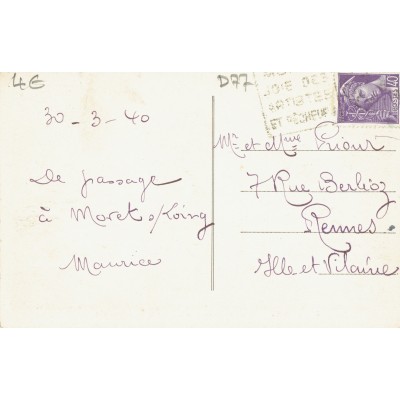 4€
D77
JOIE DES
ARTISTES
ET PÊCHEURS
30-3-40
De passage
à Moret s/Loing
Maurice
Mr et Mme Priour
7 Rue Berlioz
Rennes
Ille et Vilaine